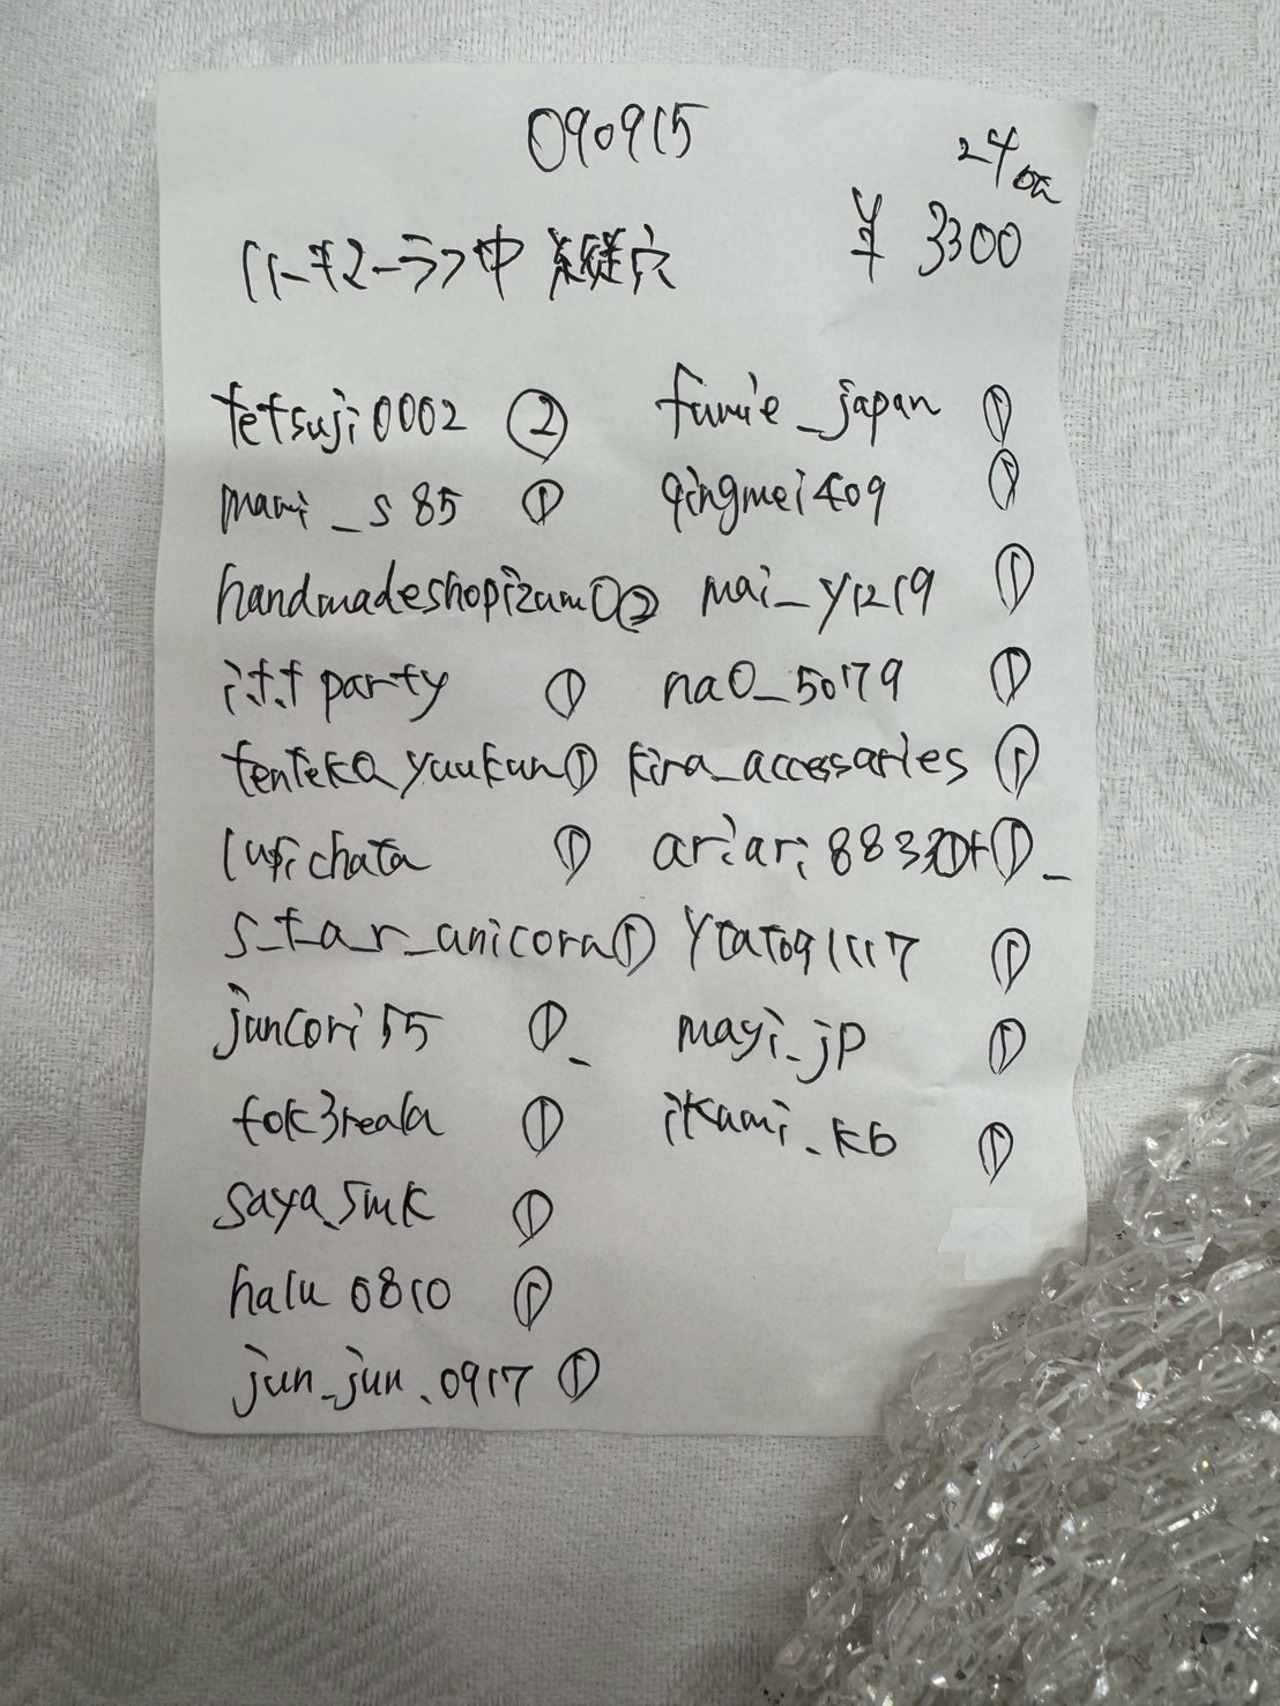 090915
24 pcs
ハーキマーラフ中 縦穴
¥ 3300
tetsuji0002 ②
mami_s85 ①
handmadeshopizumi0 ②
party ①
tenteka yuukun ①
①
s_t_a_r_unicorn ①
juncori55 ①
tok3reala ①
saya_smk ①
halu 0810 ①
jun_jun.0917 ①
fumie_japan ①
qingmei409 ①
mai_y1219 ①
nao_5079 ①
kira_accessaries ①
ariari ①
①
mayi_jp ①
ikumi_kb ①